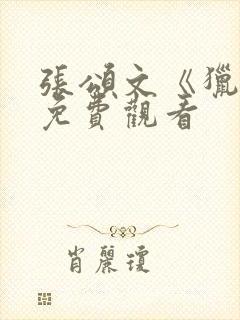 張頌文《獵
免費觀看
肖麗瓊